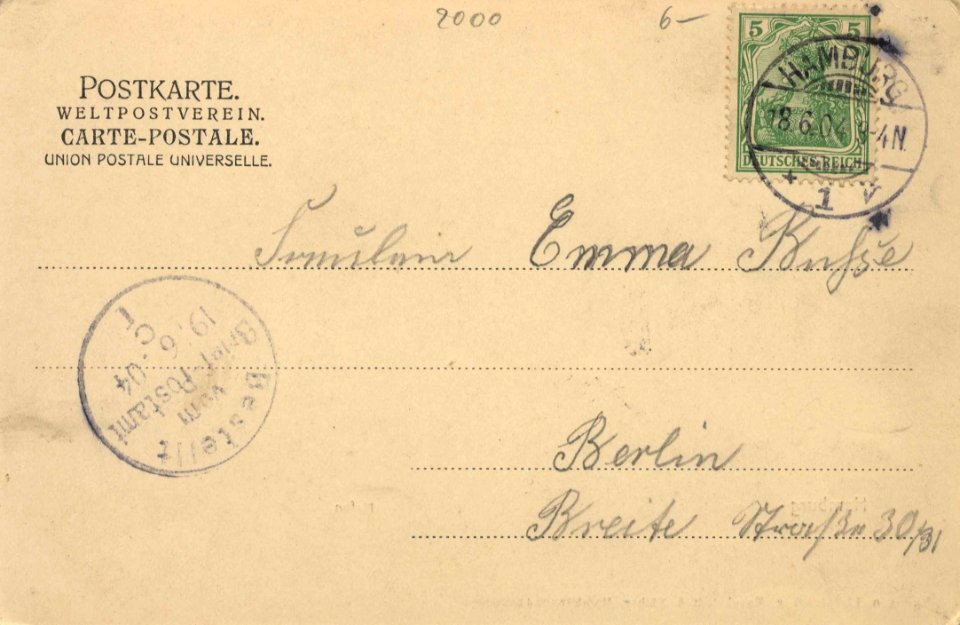 2000 6–
POSTKARTE.
WELTPOSTVEREIN.
CARTE-POSTALE.
UNION POSTALE UNIVERSELLE.
5 5
DEUTSCHES REICH
HAMBURG
18.6.04 3-4N.
* 1 v
Fräulein Emma Buhße
Bestellt
vom
Brief-Postamt
19.6.04
Berlin
Breite Straße 30/31